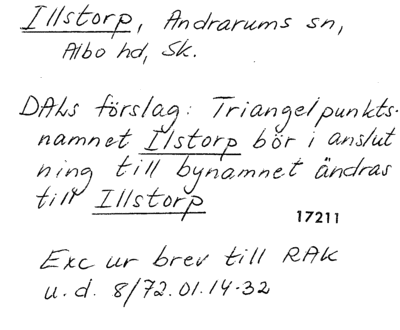 Illstorp, Andrarums sn,
Albo hd, Sk.
DALs förslag: Triangelpunkts-
namnet Ilstorp bör i anslut
ning till bynamnet ändras
till Illstorp
17211
Exc ur brev till RAK
u.d. 8/72.01.14-32